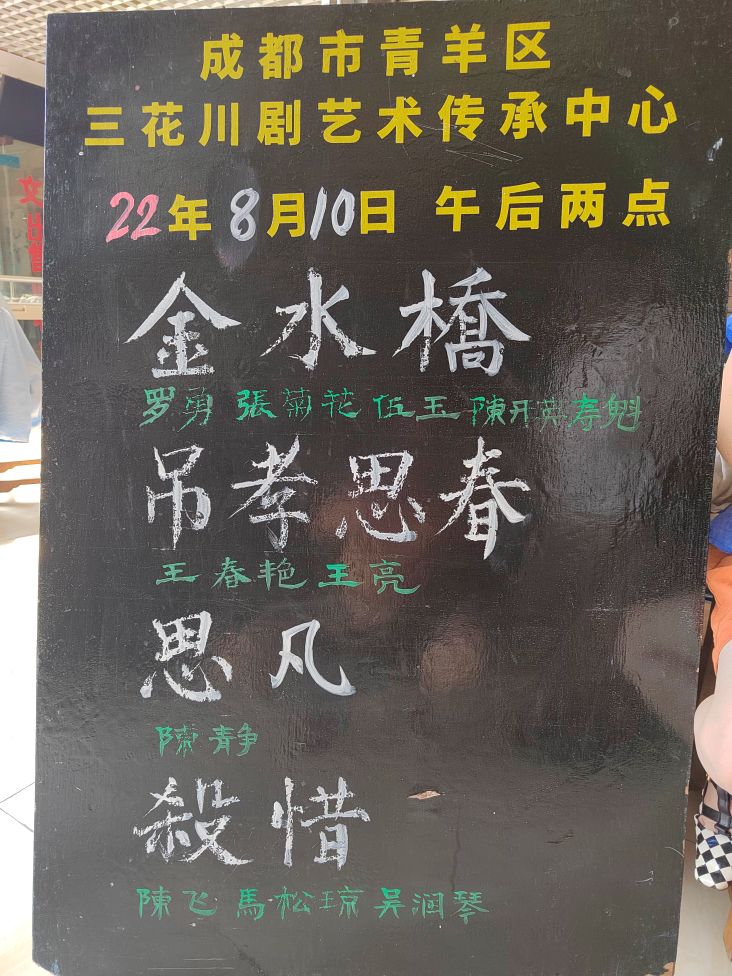 成都市青羊区
三花川剧艺术传承中心
22年8月10日 午后两点
金水橋
罗勇 張菊花 伍玉 陳开英 寿魁
吊孝思春
王春艳 王亮
思凡
陳静
殺惜
陳飞 馬松琼 吴润琴